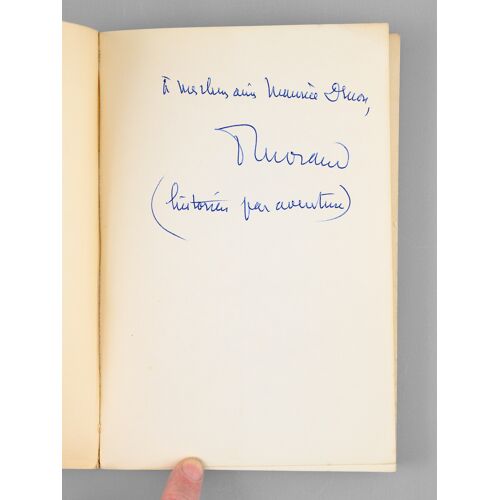 à mon cher ami Maurice Druon,
P Morand
(historien par aventure)